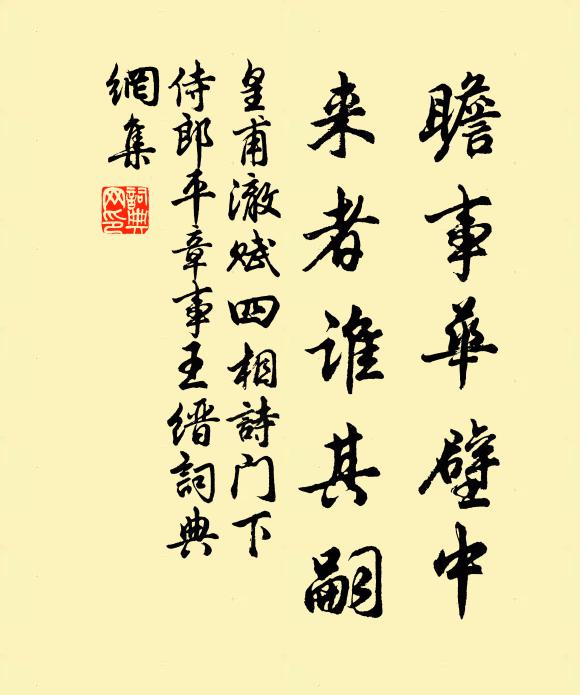 瞻事华壁中
来者谁其嗣
皇甫澈赋四相詩门下
侍郎平章事王缙詞典
網集
詞典
网印